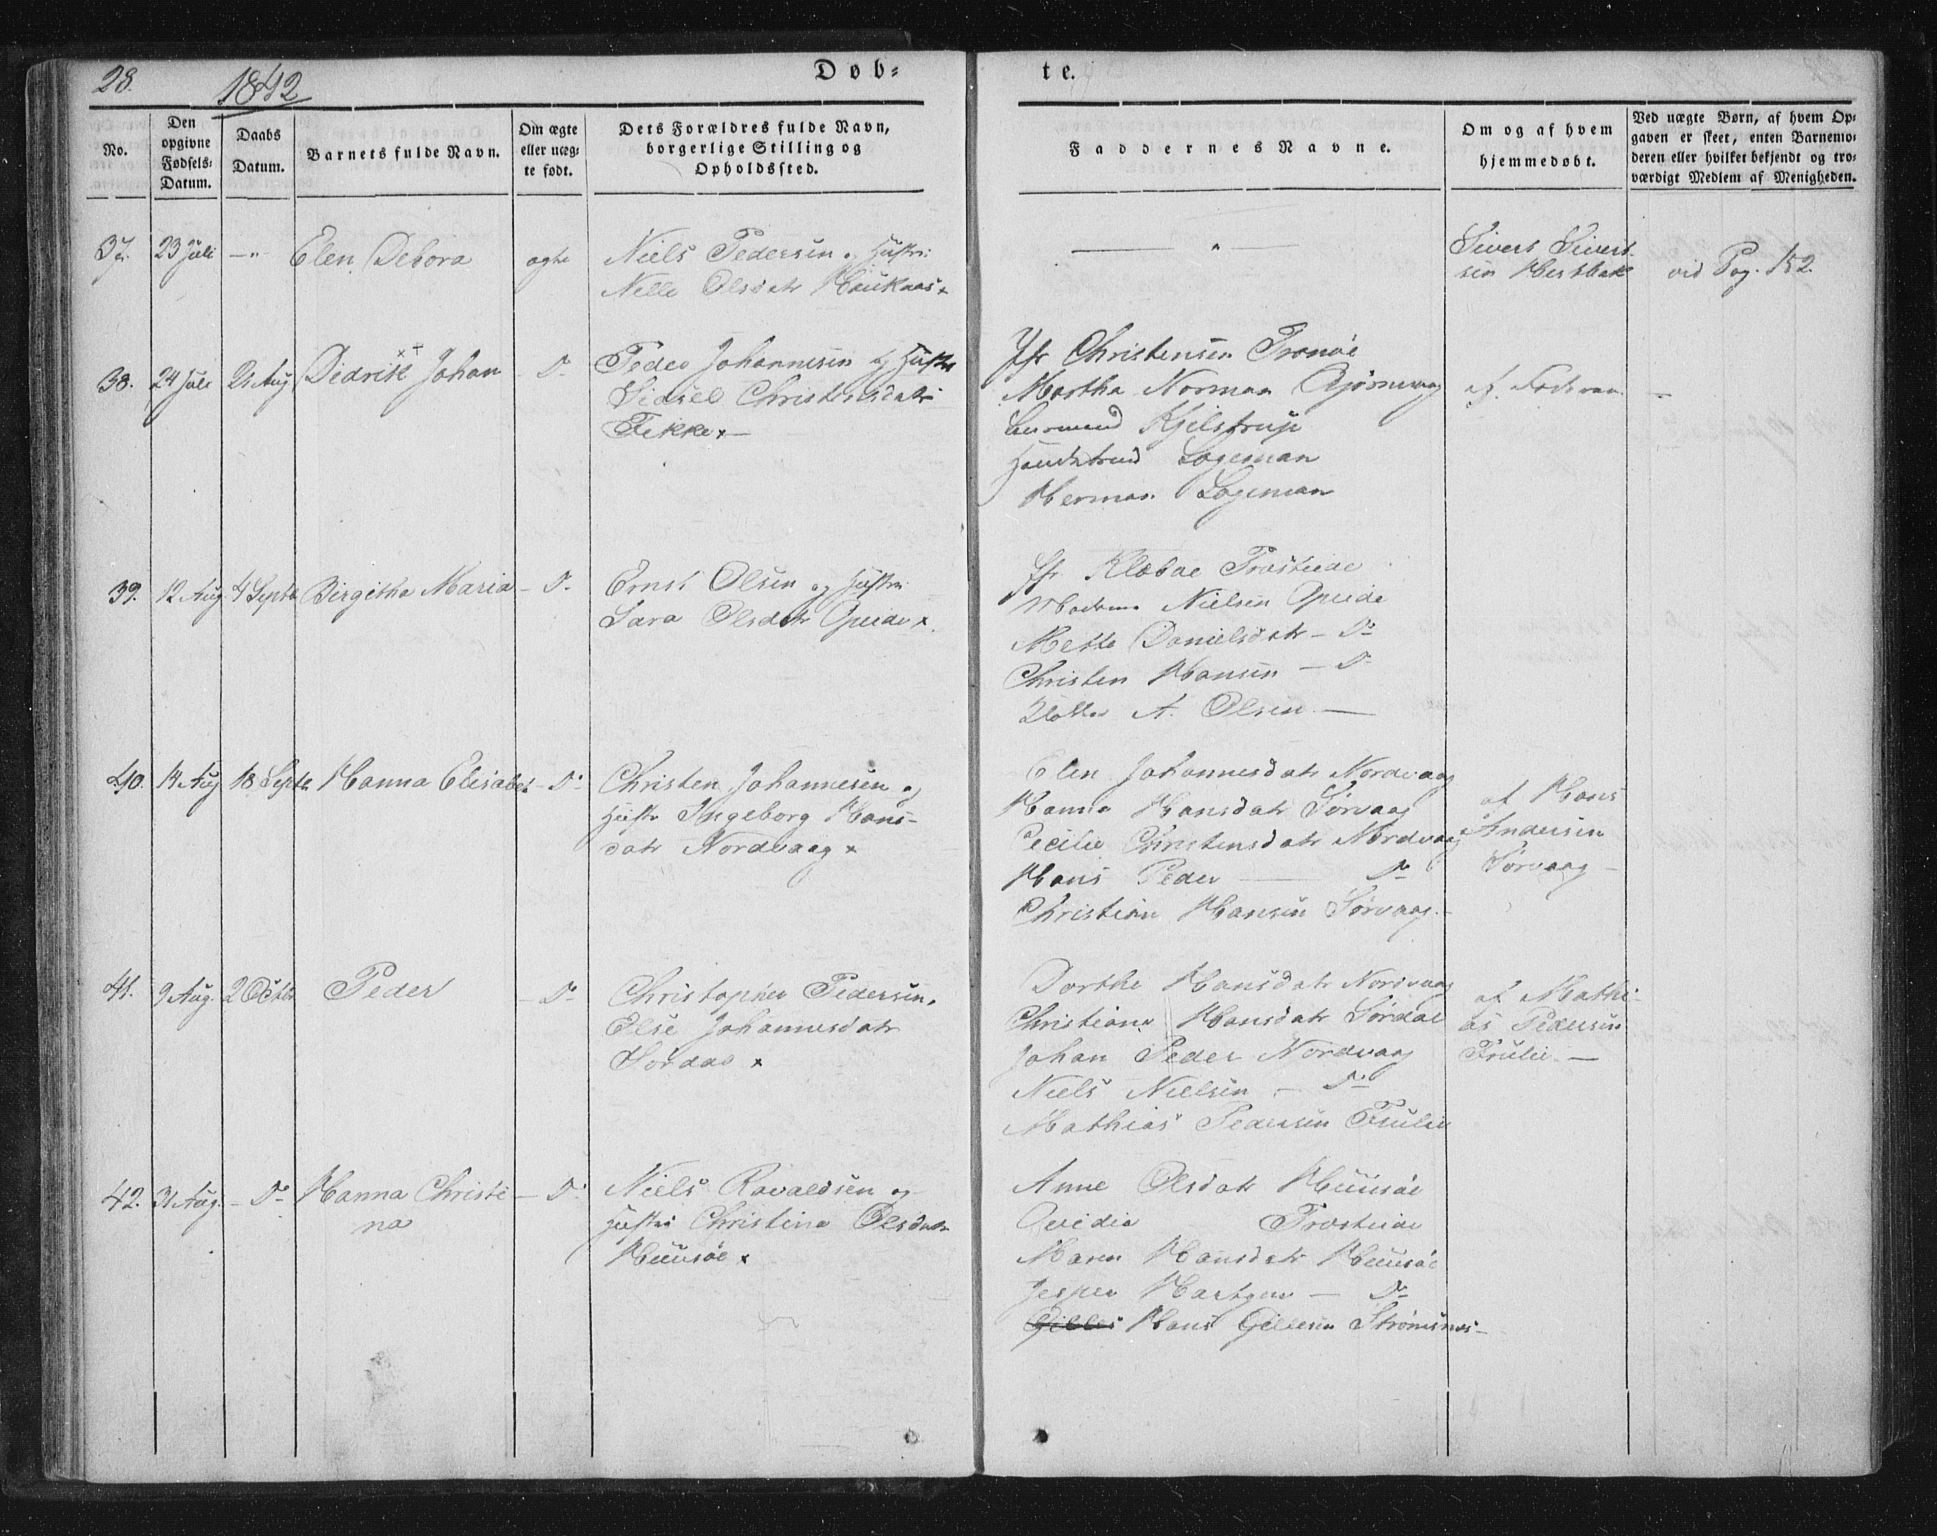 28. 1842 Døb- te.
No.
Den opgivne Fødsels- Datum.
Daabs Datum.
Barnets fulde Navn.
Om ægte eller uæg- te født.
Dets Forældres fulde Navn, borgerlige Stilling og Opholdssted.
Faddernes Navne.
Om og af hvem hjemmedøbt.
Ved uægte Børn, af hvem Op- gaven er skeet, enten Barnemo- deren eller hvilket bekjendt og tro- værdigt Medlem af Menigheden.
37. 23 Juli -"- Elen Debora ægte
Niels Pedersen og Hustru
Nelle Olsdatr Hauknæs x
— " —
Sivert Sivert-
sen
vid Pag. 152.
38. 24 Juli 21 Aug Didrik Johan - Do
Peder Johannesen og Hustr
Sidsel Christensdatr
Tekke x —
Jfr Christensen Tranøe
Martha Norman
Kjelstrup
Logeman
Herman Logeman
af Faderen —
39. 12 Aug 4 Septr Birgitha Maria - Do
Ernst Olsen og Hustru
Sara Olsdatr Opeide x
Jfr Klæboe Trøsteide
Madame Nielsen Opeide
Mette Danielsdatr - Do
Christen Hansen - Do
A. Olsen —
40. 14 Aug 18 Septr Hanna Elisabet - Do
Christen Johannesen og
Hustr Ingeborg Hans-
datr Nordvaag x
Elen Johannesdatr Nordvaag
Hanna Hansdatr Sørvaag
Cecilie Christensdatr Nordvaag
Hans Peder — Do
Christian Hansen Sørvaag -
af Hans
Andersen
Sørvaag -
41. 9 Aug. 2 Octbr Peder - Do
Christopher Pedersen,
Else Johannesdatr
Sørdal x
Dorthe Hansdatr Nordvaag
Christiana Hansdatr Sørdal
Johan Peder Nordvaag
Niels Nielsen - Do
Mathias Pedersen
af Mathi-
as Pedersen
42. 31 Aug. - Do Hanna Christi- - Do
na
Niels Ravaldsen og
Hustru Christina Olsdatr
Huusøe x
Anne Olsdatr Huusøe
Ovidia Trøsteide
Maren Hansdatr Huusøe
Jesper Hartgen — Do
Gilles Hans Gillesen Strømsnes -